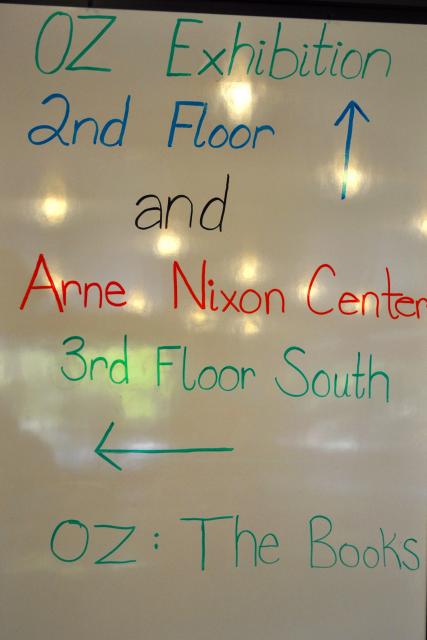 OZ Exhibition
2nd Floor
and
Arne Nixon Center
3rd Floor South
OZ: The Books